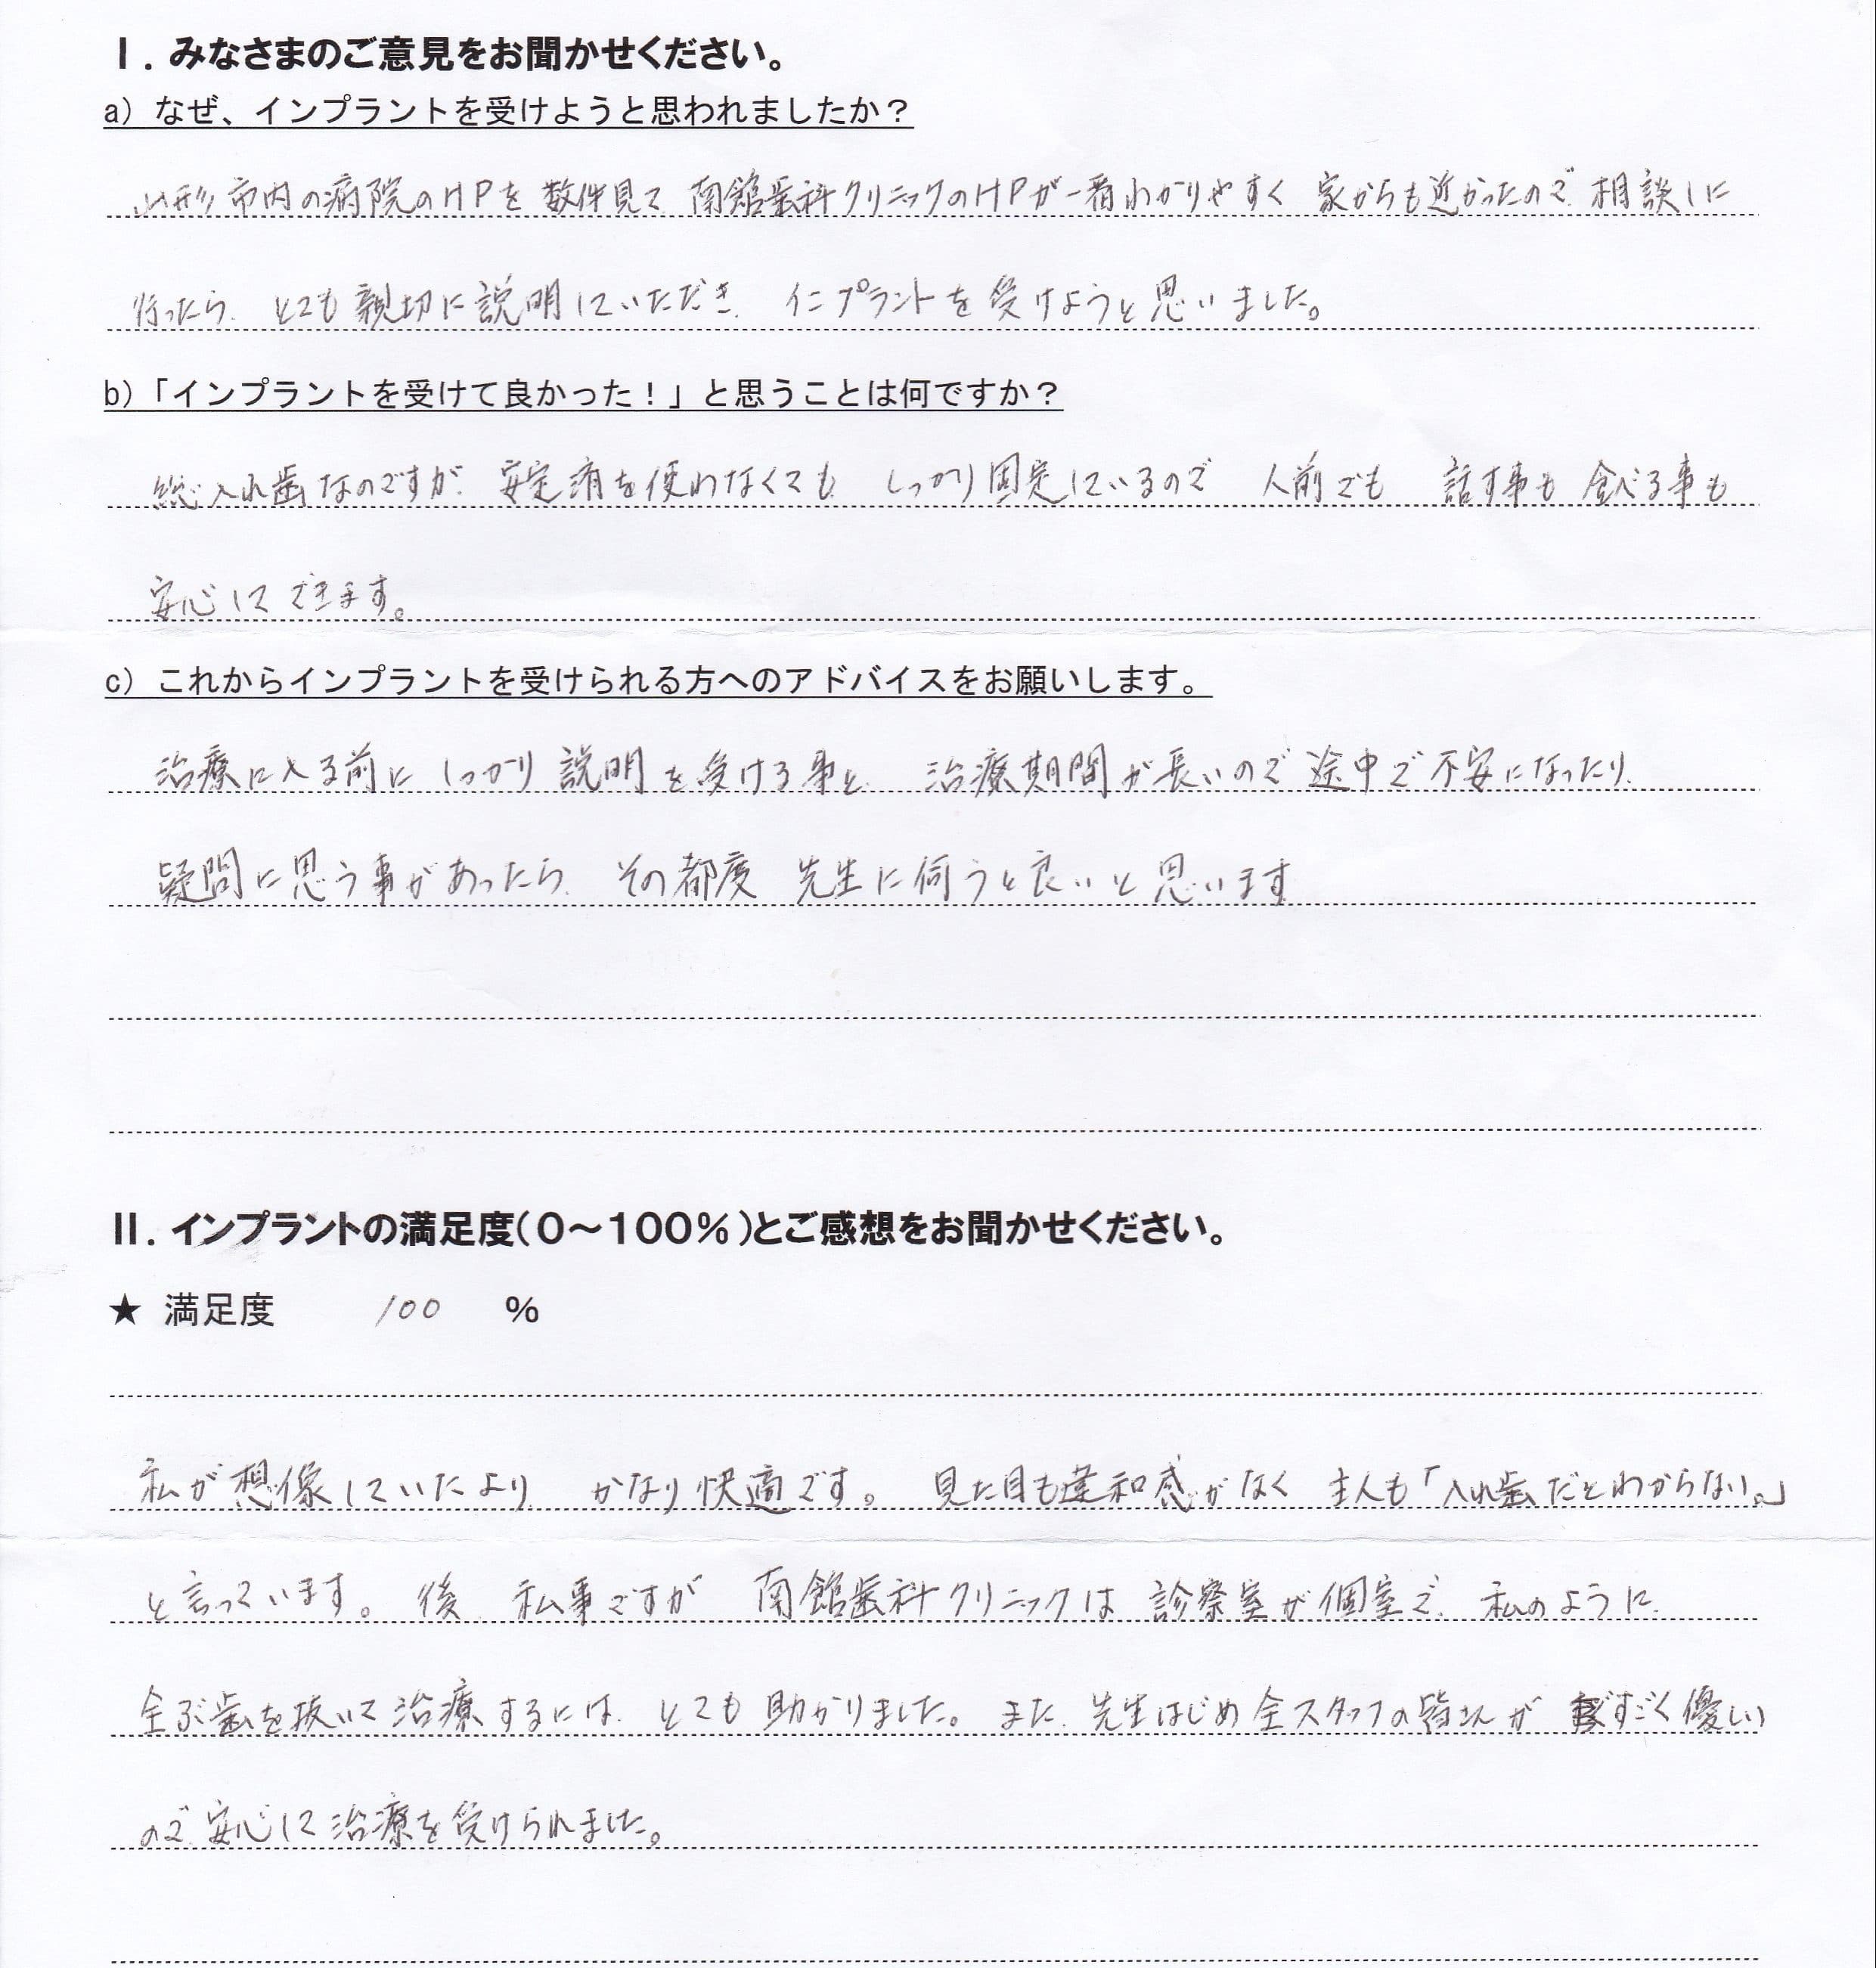 Ⅰ. みなさまのご意見をお聞かせください。
a) なぜ、インプラントを受けようと思われましたか？
山形市内の病院のHPを数件見て 南館歯科クリニックのHPが一番わかりやすく 家からも近かったので、相談しに
行ったら、とても親切に説明していただき、インプラントを受けようと思いました。
b)「インプラントを受けて良かった！」と思うことは何ですか？
総入れ歯なのですが、安定剤を使わなくても しっかり固定しているので 人前でも 話す事も 食べる事も
安心してできます。
c) これからインプラントを受けられる方へのアドバイスをお願いします。
治療に入る前に しっかり説明を受ける事と、治療期間が長いので途中で不安になったり、
疑問に思う事があったら、その都度 先生に伺うと良いと思います
Ⅱ. インプラントの満足度(0～100%)とご感想をお聞かせください。
★ 満足度 100 %
私が想像していたより かなり快適です。 見た目も違和感がなく 主人も「入れ歯だとわからない。」
と言っています。後、私事ですが 南館歯科クリニックは 診察室が個室で、私のように、
全ぶ歯を抜いて治療するには、とても助かりました。また、先生はじめ全スタッフの皆さんが すごく優しい
ので、安心して治療を受けられました。